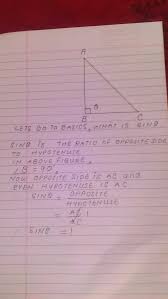 A
θ
B
C
LETS GO TO BASICS, WHAT IS SINθ
SINθ IS THE RATIO OF OPPOSITE SIDE
TO HYPOTENUSE
IN ABOVE FIGURE,
∠B = 90°,
NOW OPPOSITE SIDE IS AC AND
EVEN HYPOTENUSE IS AC
SINθ = OPPOSITE
HYPOTENUSE
= AC
AC
SINθ = 1